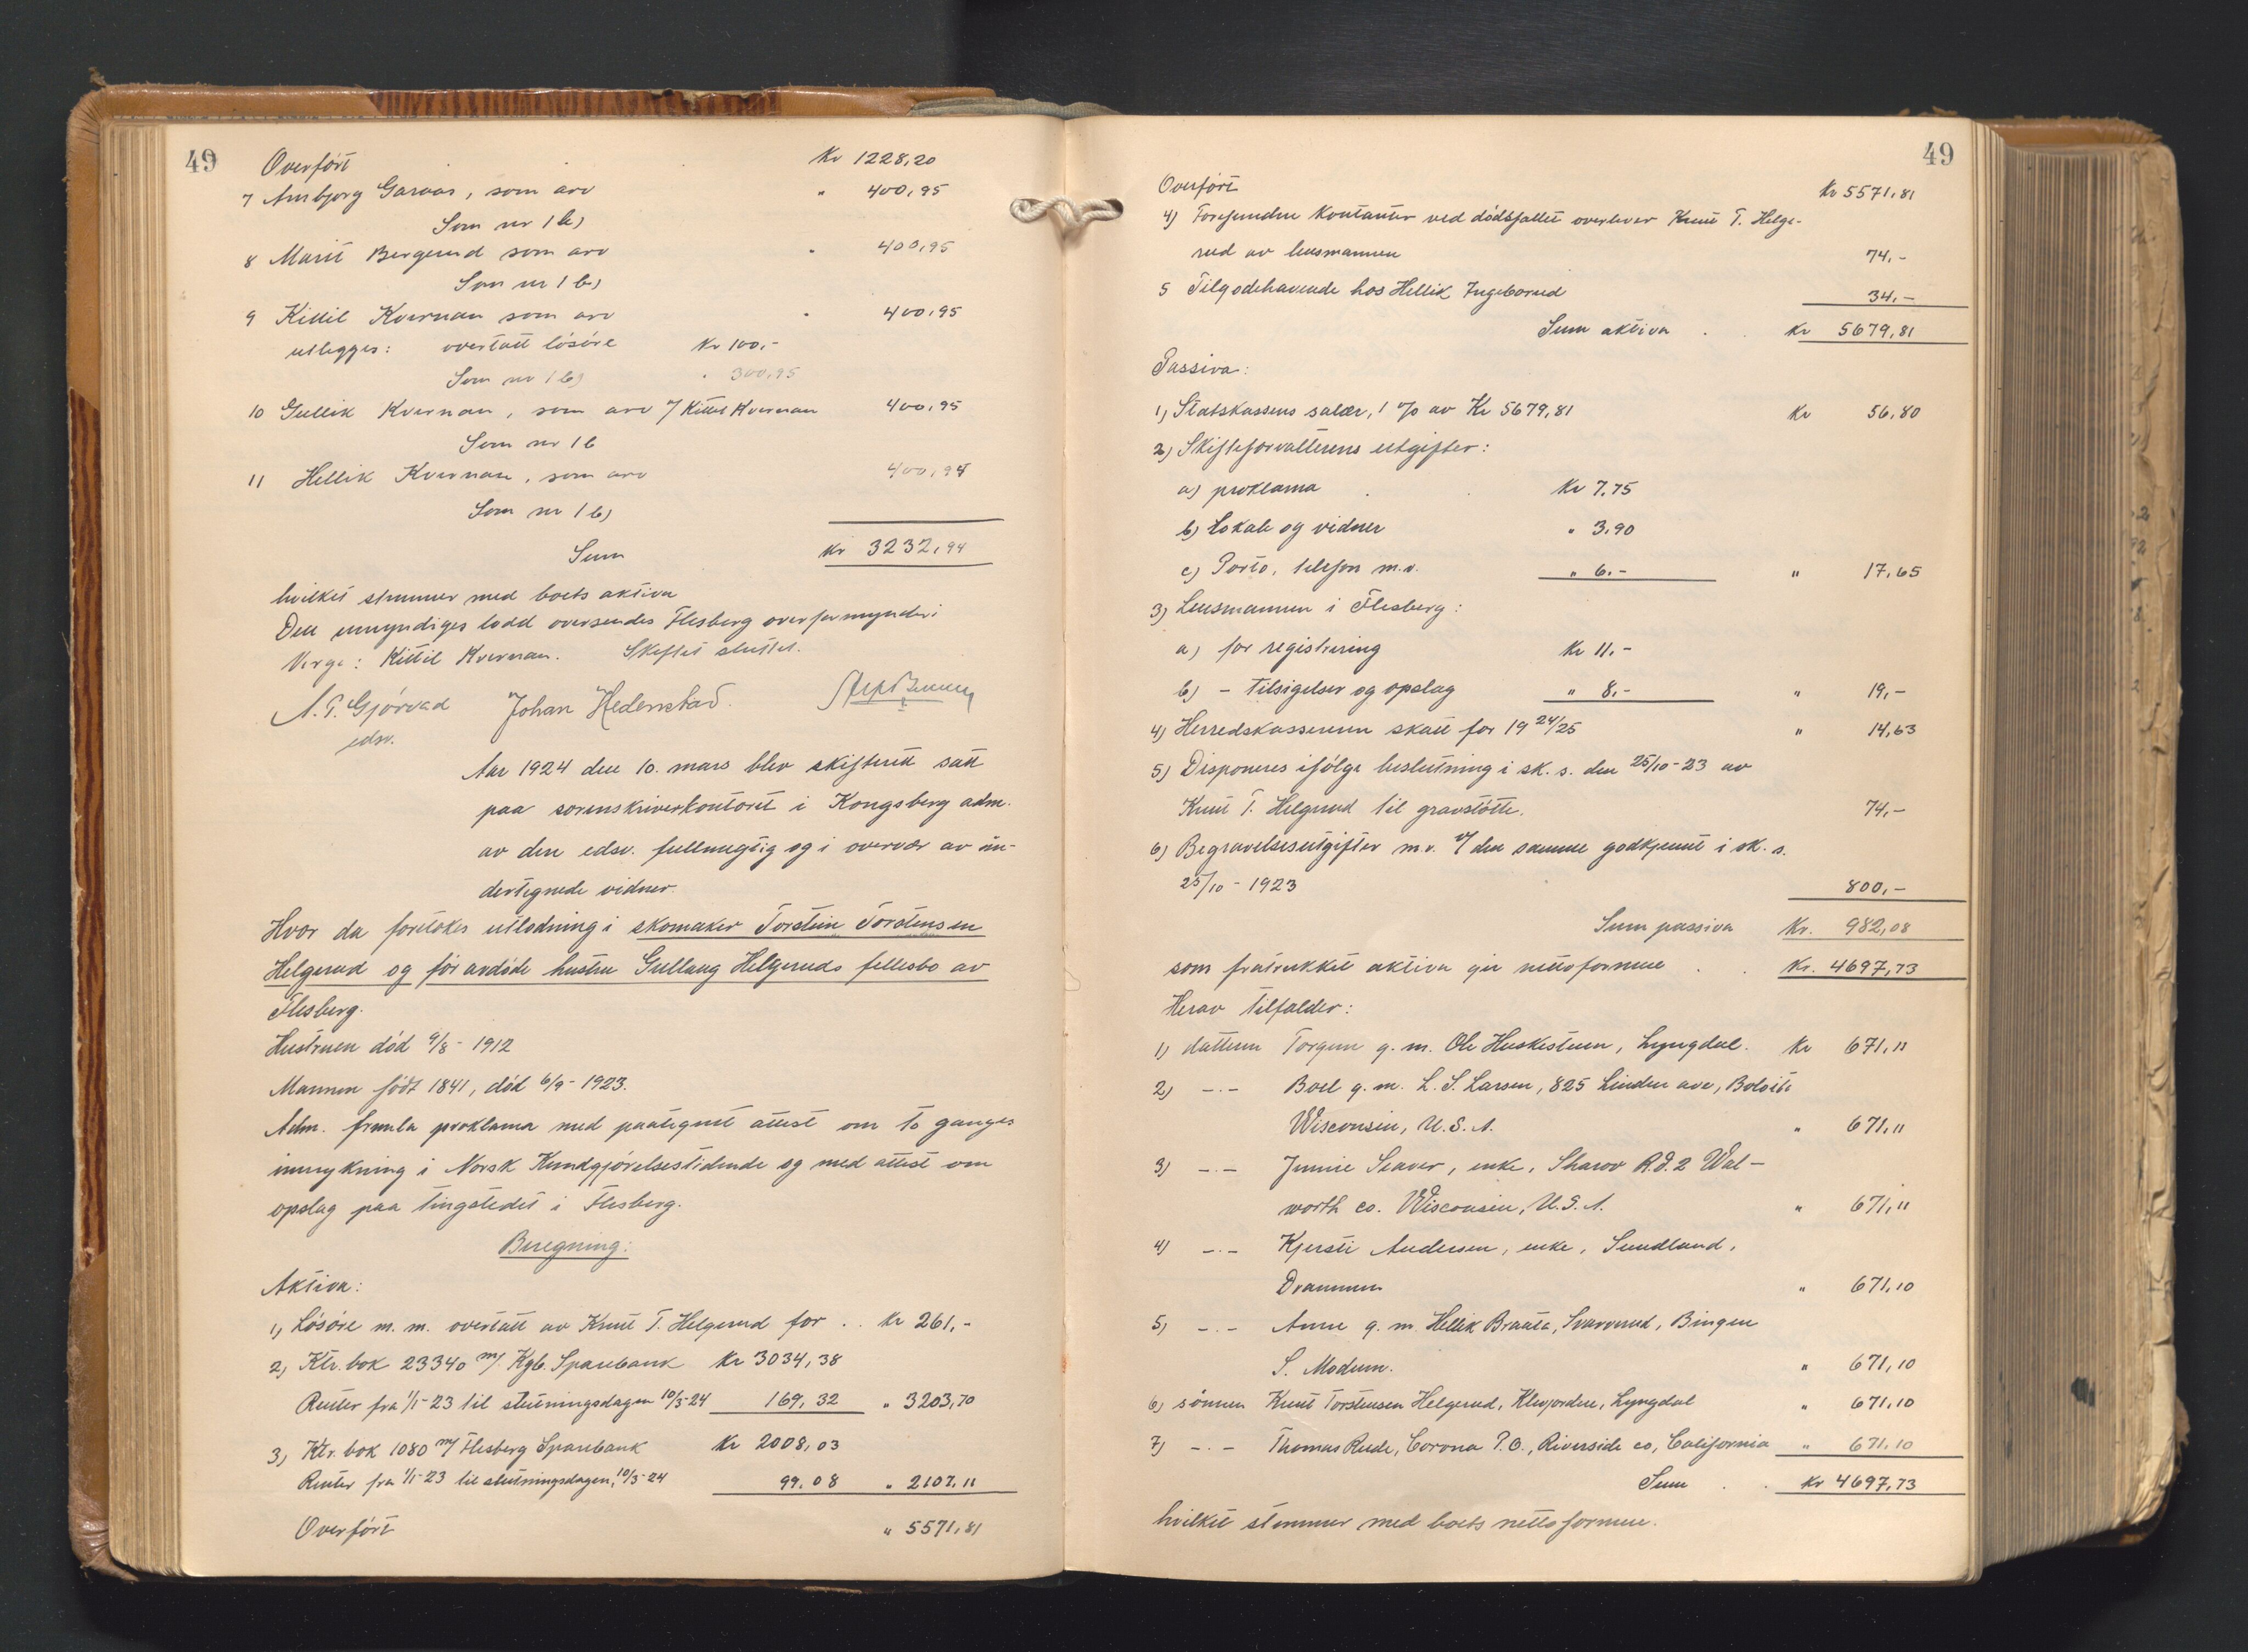 49
Overført Kr 1228,20
7 Ambjørg Garaas, som arv " 400,95
Som nr 1 b)
8 Marit Bergerud som arv " 400,95
Som nr 1 b)
9 Kittil Kvernan som arv " 400,95
utlegges: overtatt løsøre Kr 100,-
Som nr 1 b) " 300,95
10 Gullik Kvernan, som arv v/ Kittil Kvernan 400,95
Som nr 1 b
11 Hellik Kvernan, som arv 400,94
Som nr 1 b)
Sum Kr 3232,94
hvilket stemmer med boets aktiva
Den umyndiges lodd oversendes Flesberg overformynderi
Verge: Kittil Kvernan. Skiftet sluttet.
N. T. Gjørvad Johan Hedenstad.
edsv.
Aar 1924 den 10. mars blev skifterett satt
paa sorenskriverkontoret i Kongsberg adm.
av den edsv. fullmegtig og i overvær av un-
dertegnede vidner.
Hvor da foretokes utlodning i skomaker Torstein Torstensen
Helgerud og før avdøde hustru Gullaug Helgeruds fellesbo av
Flesberg.
Hustruen død 9/8 - 1912
Mannen født 1841, død 6/9 - 1923.
Adm. fremla proklama med paategnet attest om to ganges
innrykning i Norsk Kundgjørelsestidende og med attest om
opslag paa tingstedet i Flesberg.
Beregning:
Aktiva:
1) Løsøre m. m. overtatt av Knut T. Helgerud for . . Kr 261,-
2) Ktr. bok 23340 m/ Kgb. Sparebank Kr 3034,38
Renter fra 1/1-23 til slutningsdagen 10/3-24 169,32 " 3203,70
3) Ktr. bok 1080 m/ Flesberg Sparebank Kr 2008,03
Renter fra 1/1-23 til slutningsdagen, 10/3-24 99,08 " 2107,11
Overført " 5571,81
49
Overført Kr 5571,81
4) Forefundne Kontanter ved dødsfallet overlever Knut T. Helge-
rud av lensmannen 74,-
5 Tilgodehavende hos Hellik Ingeborrud 34,-
Sum aktiva . . Kr 5679,81
Passiva:
1) Statskassens salær, 1 % av Kr 5679,81 Kr 56,80
2) Skifteforvalterens utgifter:
a) proklama . . Kr 7,75
b) Lokale og vidner " 3,90
c) Porto, telefon m.v. " 6.- " 17,65
3) Lensmannen i Flesberg:
a) for registrering Kr 11.-
b) - Tilsigelser og opslag " 8,- " 19,-
4) Herredskassereren skatt for 19 24/25 " 14,63
5) Disponeres ifølge beslutning i sk. s. den 25/10-23 av
Knut T. Helgerud til gravstøtte. 74,-
6) Begravelsesutgifter m.v. v/ den samme godkjennt i sk. s.
25/10 - 1923 800,-
Sum passiva Kr. 982,08
som fratrukket aktiva gir nettoformue . . Kr. 4697,73
Herav tilfalder:
1) datteren Torgun g. m. Ole Huskestuen, Lyngdal. Kr 671,11
2) -.- Boel g. m. L. S. Larsen, 825 Linden ave, Boloite
Wisconsin, U.S.A. " 671,11
3) -.- Jennie Seaver, enke, Sharov R.d. 2 Wal-
worth co. Wisconsin, U.S.A. " 671,11
4) -.- Kjersti Andersen, enke, Sundland,
Drammen " 671,10
5) -.- Anne g. m. Hellik Braata, Svarverud, Bingen
S. Modum. " 671,10
6) sønnen Knut Torstensen Helgerud, Klevjordene, Lyngdal " 671,10
7) -.- Thomas Rude, Corona P.O., Riverside co, California " 671,10
Sum . . Kr 4697,73
hvilket stemmer med boets nettoformue.